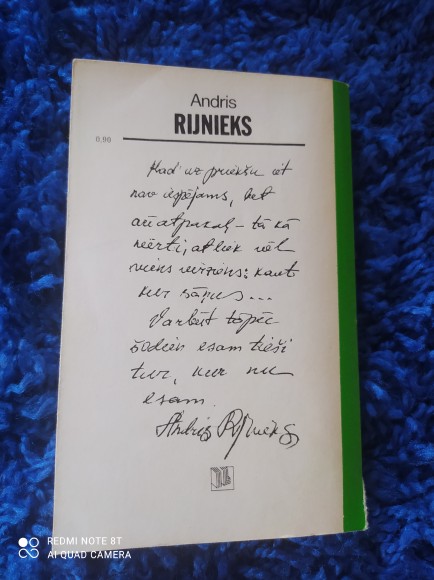 Andris
RIJNIEKS
0,90
Kad uz priekšu iet
nav iespējams, bet
arī atpakaļ – tā kā
nērti, atliek vēl
viens virziens: kaut
kur sāņus...
Varbūt tāpēc
šodien esam tieši
tur, kur nu
esam.
Andris Rijnieks
REDMI NOTE 8T
AI QUAD CAMERA